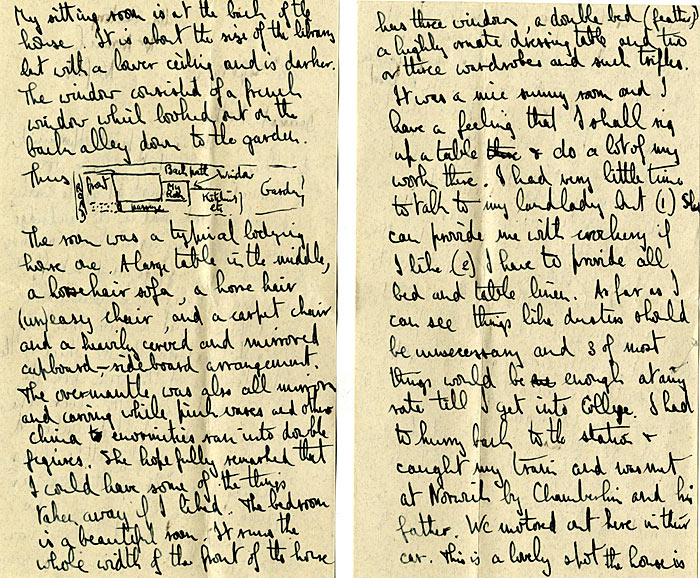 My sitting room is at the back of the
house. It is about the size of the library
but with a lower ceiling and is darker.
The window consisted of a french
window which looked out on the
back alley down to the garden.
Thus
Back path
window
front
My Room
Kitchen
etc
Garden
passage
The room was a typical lodging
house one. A large table in the middle,
a horsehair sofa, a horse hair
(un)easy chair, and a carpet chair
and a heavily carved and mirrored
cupboard-sideboard arrangement.
The overmantle was also all mirrors
and carving while pink vases and other
china enormities ran into double
figures. She hopefully remarked that
I could have some of the things
taken away if I liked. The bedroom
is a beautiful room. It runs the
whole width of the front of the house
has three windows, a double bed (feather)
a highly ornate dressing table and two
or three wardrobes and such trifles.
It was a nice sunny room and I
have a feeling that I shall rig
up a table there & do a lot of my
work there. I had very little time
to talk to my landlady but (1) She
can provide me with crockery if
I like (2) I have to provide all
bed and table linen. As far as I
can see things like dusters should
be unnecessary and 3 of most
things would be enough at any
rate till I get into College. I had
to hurry back to the station &
caught my train and was met
at Norwich by Chamberlin and his
father. We motored out here in their
car. This is a lovely spot the house is